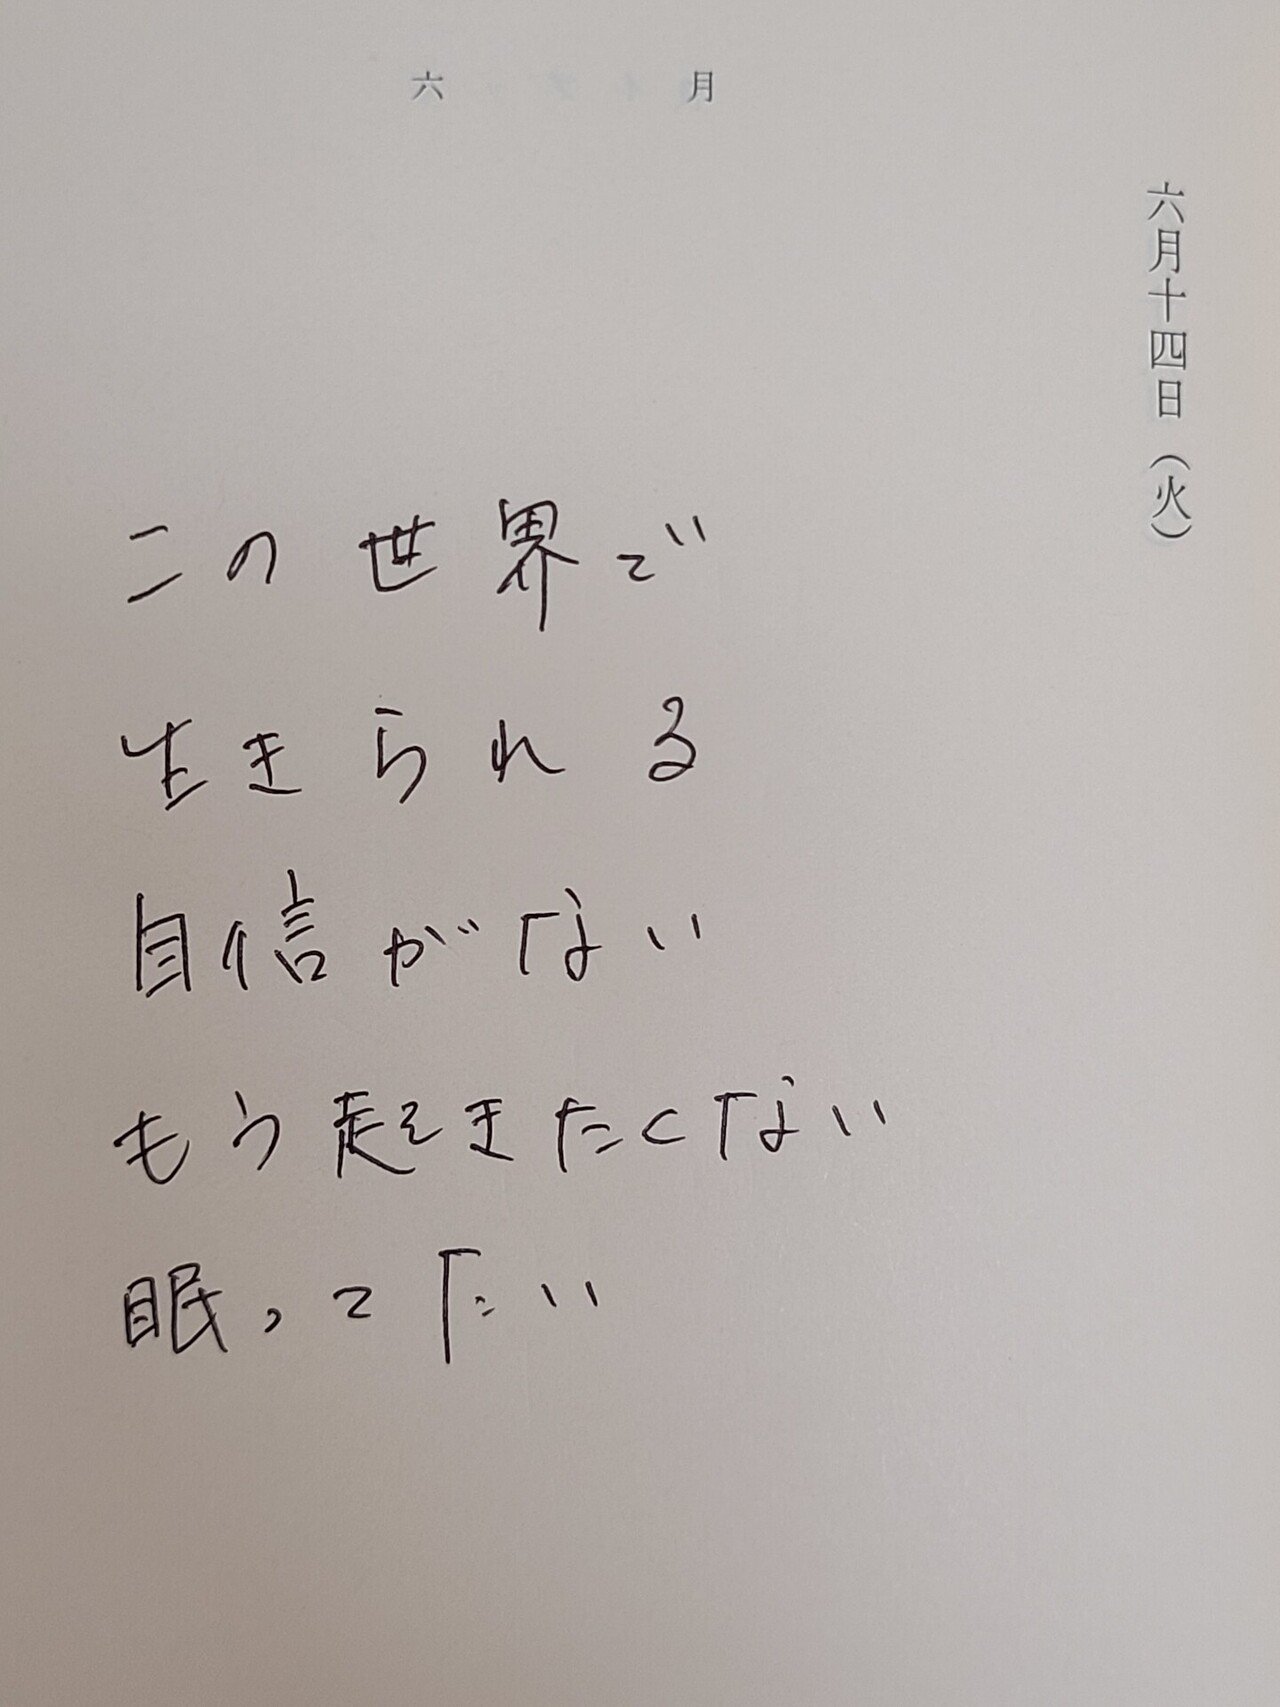 六月
六月十四日（火）
この世界で
生きられる
自信がない
もう起きたくない
眠ってたい